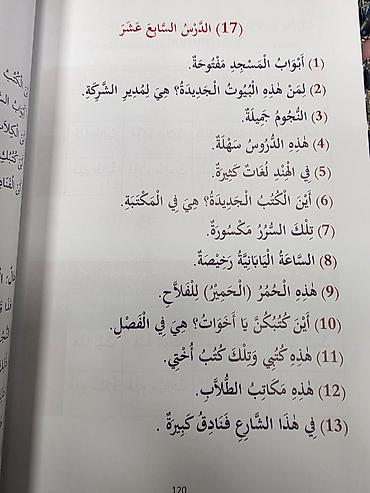 (17) الدَّرْسُ السَّابِعَ عَشَرَ
(1) أَبْوَابُ الْمَسْجِدِ مَفْتُوحَةٌ.
(2) لِمَنْ هٰذِهِ الْبُيُوتُ الْجَدِيدَةُ؟ هِيَ لِمُدِيرِ الشَّرِكَةِ.
(3) النُّجُومُ جَمِيلَةٌ.
(4) هٰذِهِ الدُّرُوسُ سَهْلَةٌ.
(5) فِي الْهِنْدِ لُغَاتٌ كَثِيرَةٌ.
(6) أَيْنَ الْكُتُبُ الْجَدِيدَةُ؟ هِيَ فِي الْمَكْتَبَةِ.
(7) تِلْكَ السُّرُرُ مَكْسُورَةٌ.
(8) السَّاعَةُ الْيَابَانِيَّةُ رَخِيصَةٌ.
(9) هٰذِهِ الْحُمُرُ (الْحَمِيْرُ) لِلْفَلَّاحِ.
(10) أَيْنَ كُتُبُكُنَّ يَا أَخَوَاتُ؟ هِيَ فِي الْفَصْلِ.
(11) هٰذِهِ كُتُبِي وَتِلْكَ كُتُبُ أُخْتِي.
(12) هٰذِهِ مَكَاتِبُ الطُّلَّابِ.
(13) فِي هٰذَا الشَّارِعِ فَنَادِقُ كَبِيرَةٌ .
120